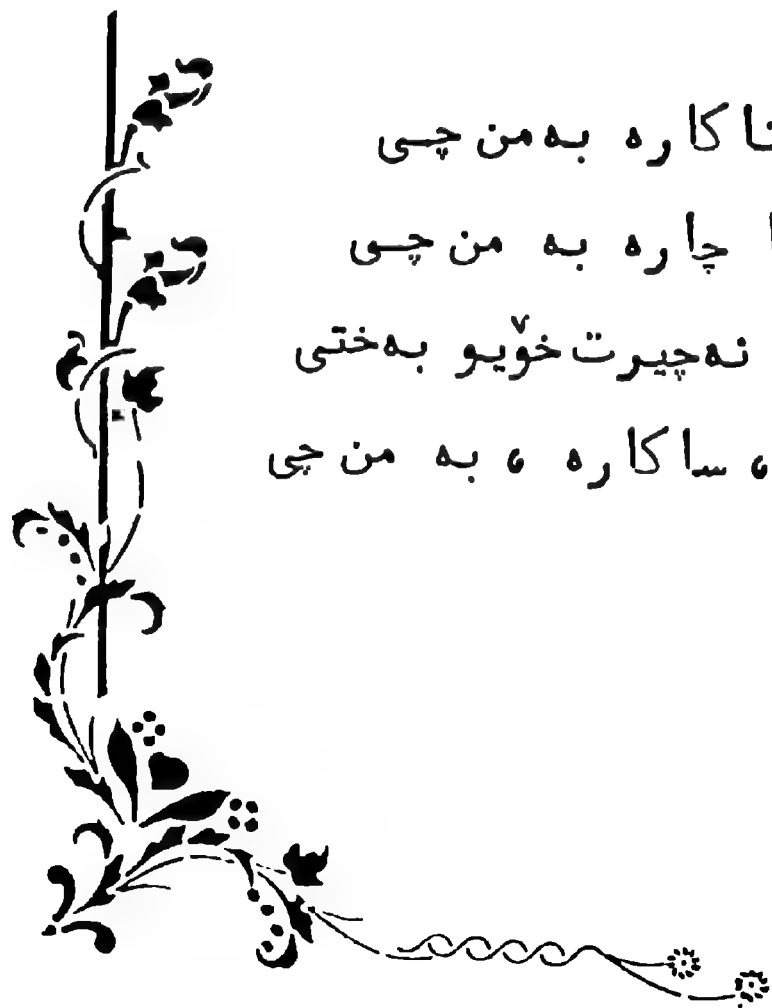 ناکارە بەمن چی
ا چارە بە من چی
نەچیرت خۆیو بەختی
، ساکارە ، بە من چی